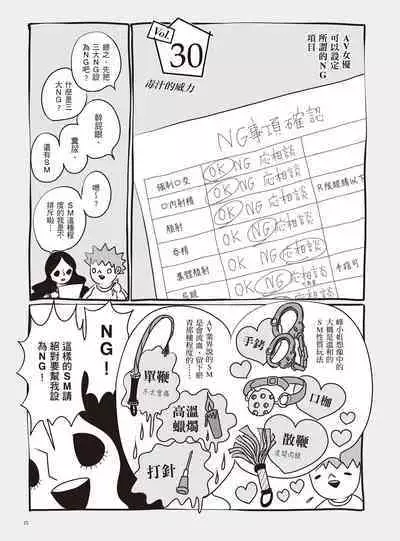 Vol.
30
毒汁的威力
AV女優
可以設定
所謂的NG
項目
NG事項確認
強制口交 OK NG 応相談
口內射精 OK NG 応相談
顏射 OK NG 応相談
吞精 OK NG 応相談
集體顏射 OK NG 応相談
OK NG 応相談
總之，先把
三大NG設
為NG吧？
什麼是三
大NG？
幹屁眼、
糞尿、
還有SM
嗯～？
SM這種程
度的我是不
排斥啦…
峰小姐想像中的
大概是溫和的
SM性質玩法
手銬
口枷
散鞭
AV業界說的SM
是會流血、留下瘀
青那種程度的……
單鞭
高溫
蠟燭
打針
NG！
這樣的SM請
絕對要幫我設
為NG！